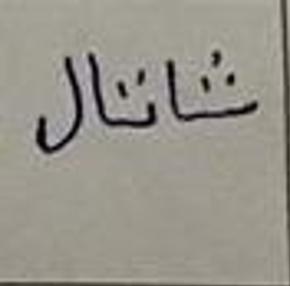 شانتال